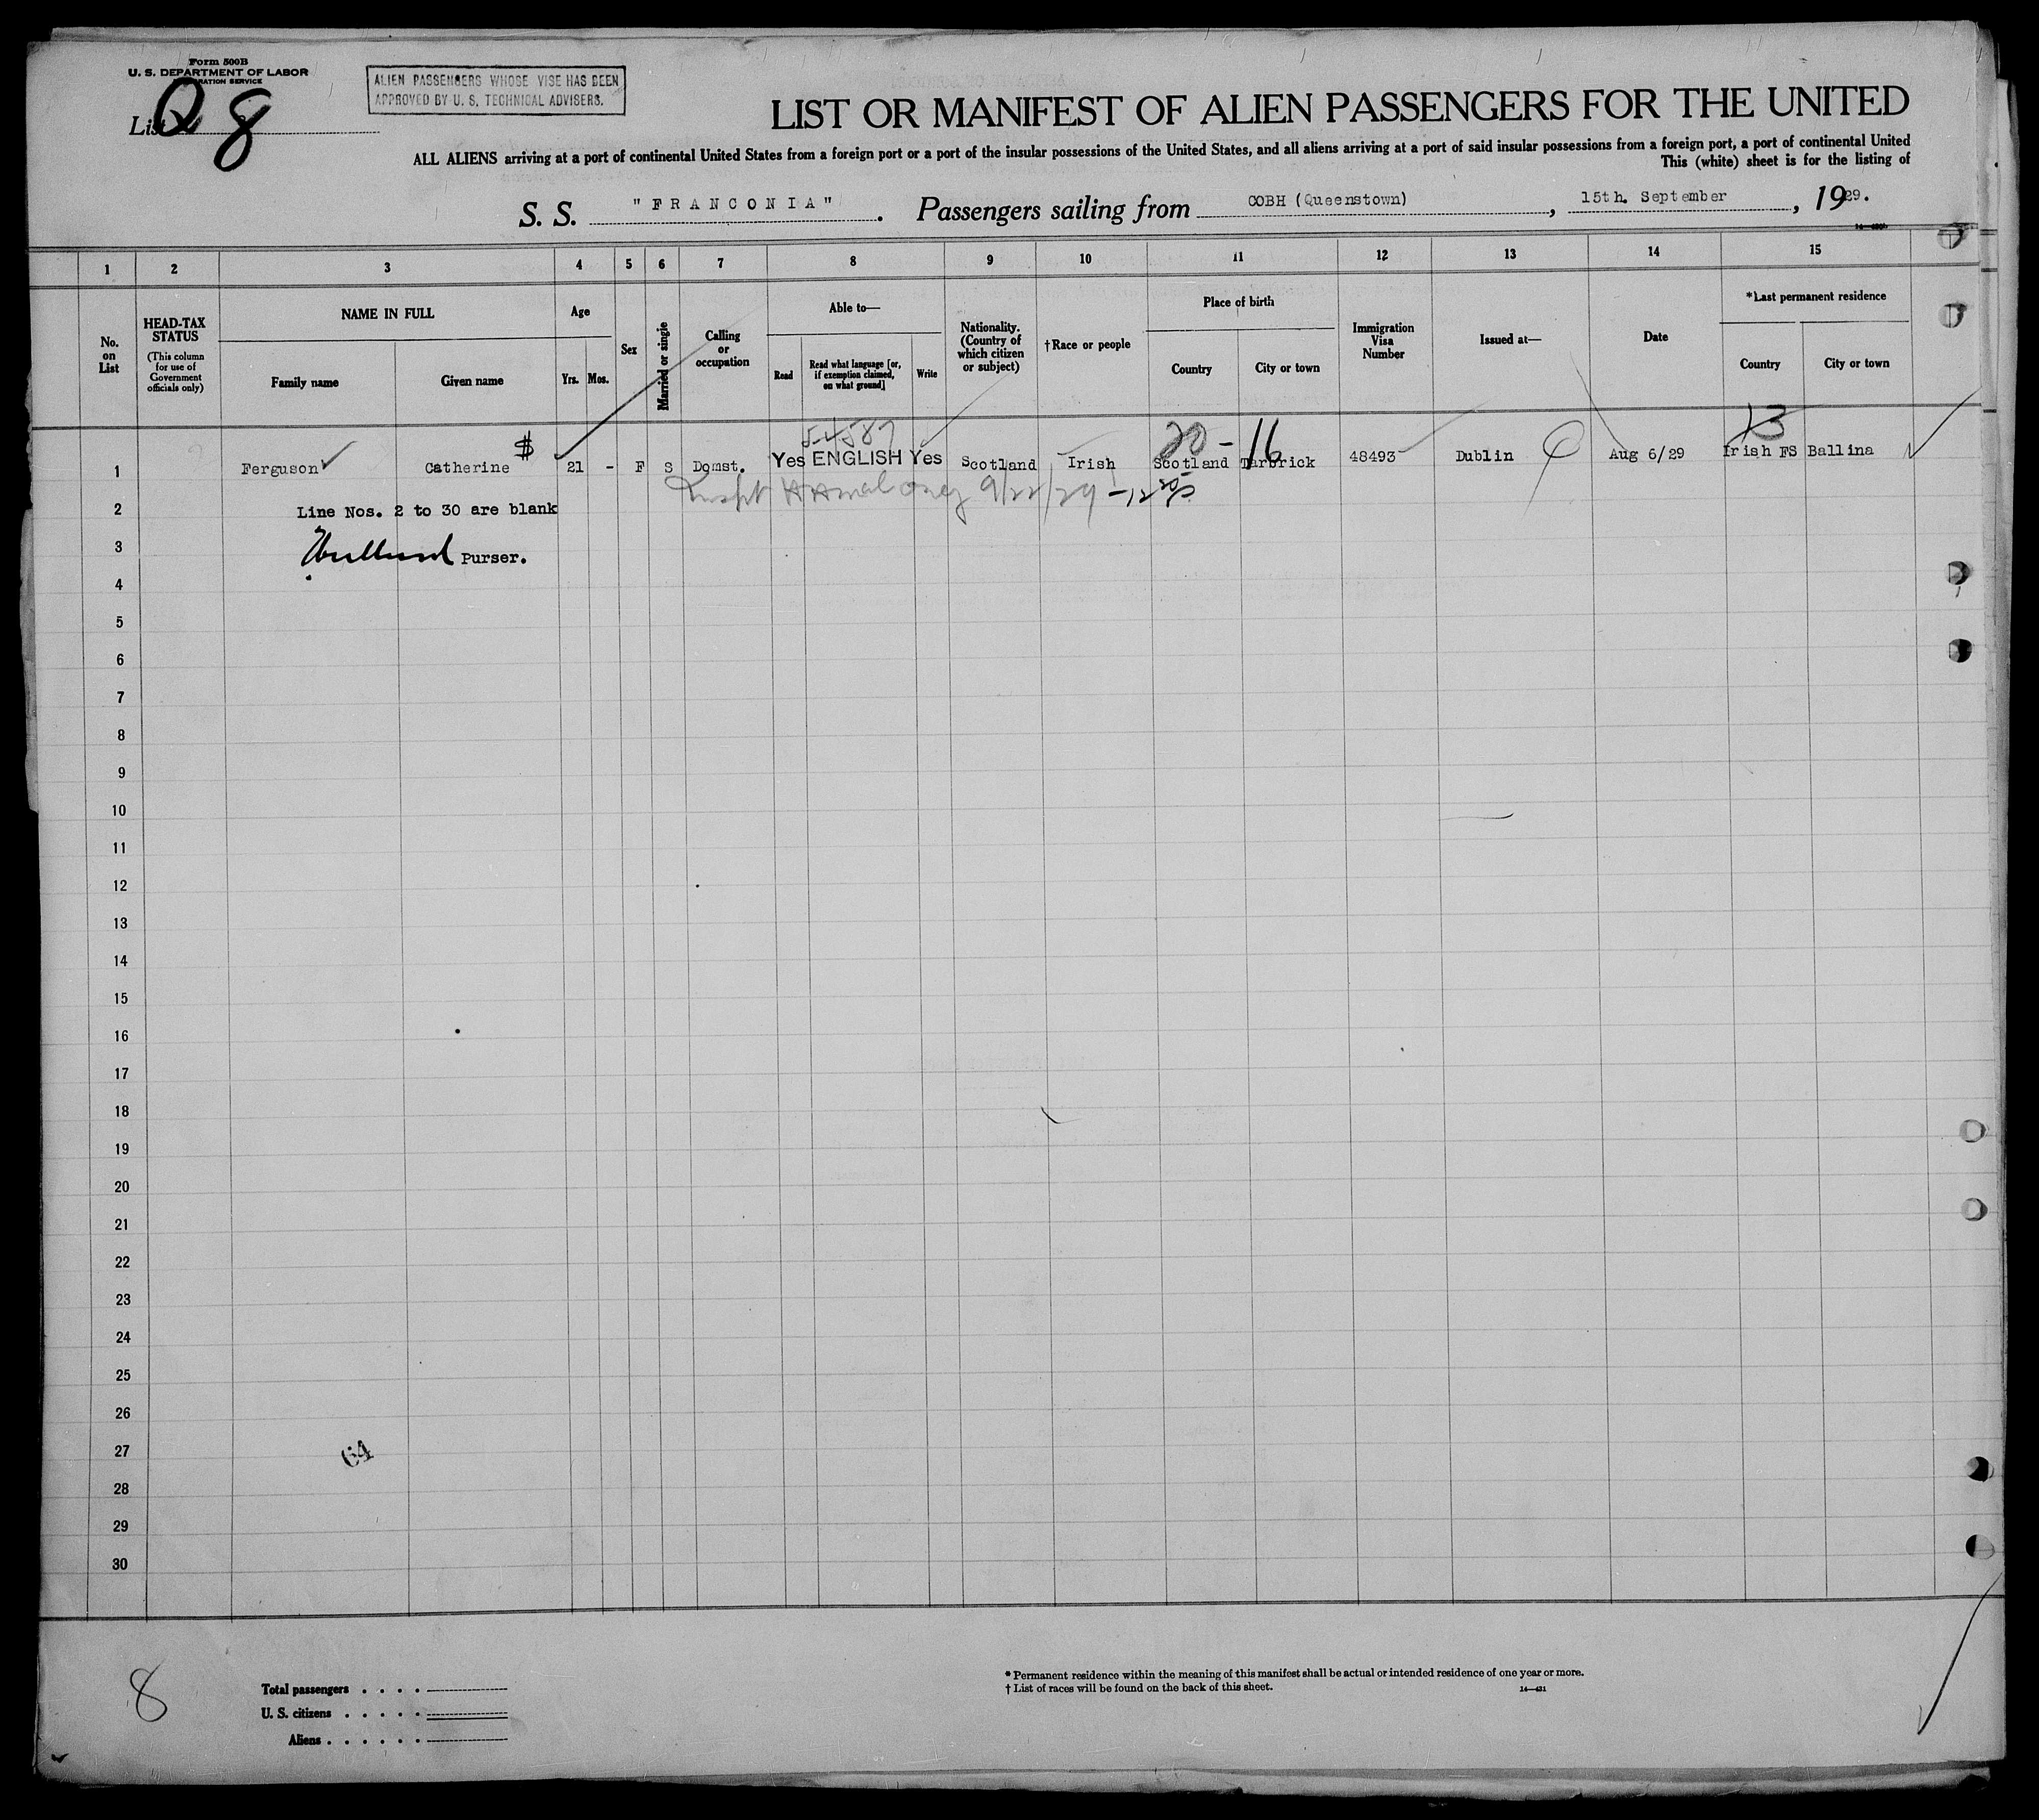 Form 500B
U. S. DEPARTMENT OF LABOR
List Q 8
ALIEN PASSENGERS WHOSE VISE HAS BEEN
APPROVED BY U. S. TECHNICAL ADVISERS.
LIST OR MANIFEST OF ALIEN PASSENGERS FOR THE UNITED
ALL ALIENS arriving at a port of continental United States from a foreign port or a port of the insular possessions of the United States, and all aliens arriving at a port of said insular possessions from a foreign port, a port of continental United
This (white) sheet is for the listing of
S. S. "FRANCONIA". Passengers sailing from COBH (Queenstown), 15th. September, 1929.
1 2 3 4 5 6 7 8 9 10 11 12 13 14 15
No. on List
HEAD-TAX STATUS
(This column for use of Government officials only)
NAME IN FULL
Family name
Given name
Age
Yrs. Mos.
Sex
Married or single
Calling or occupation
Able to—
Read
Read what language [or, if exemption claimed, on what ground]
Write
Nationality. (Country of which citizen or subject)
†Race or people
Place of birth
Country
City or town
Immigration Visa Number
Issued at—
Date
*Last permanent residence
Country
City or town
20 - 16 13
1 Ferguson Catherine $ 21 - F S Domst. Yes ENGLISH Yes Scotland Irish Scotland Tarbrick 48493 Dublin Aug 6/29 Irish FS Ballina
9/22/29
2 Line Nos. 2 to 30 are blank
3 Purser.
4
5
6
7
8
9
10
11
12
13
14
15
16
17
18
19
20
21
22
23
24
25
26
27
64
28
29
30
8
Total passengers . . . .
U. S. citizens . . . . .
Aliens . . . . . .
* Permanent residence within the meaning of this manifest shall be actual or intended residence of one year or more.
† List of races will be found on the back of this sheet.